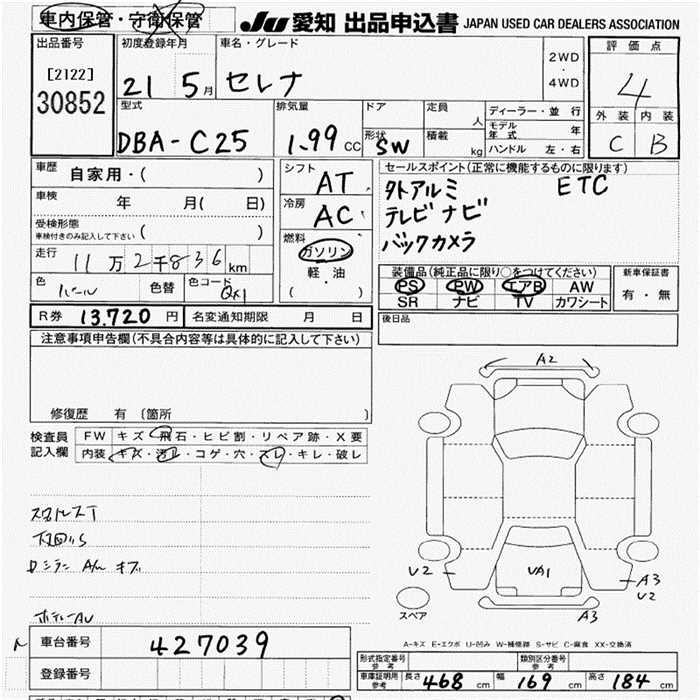 車内保管・守衛保管 JU 愛知 出品申込書 JAPAN USED CAR DEALERS ASSOCIATION
出品番号 初度登録年月 車名・グレード 2WD・4WD 評価点
[2122] 21 5月 セレナ 4
30852 型式 排気量 ドア 定員 人 ディーラー・並 行 外装 内装
モデル年式 年
DBA-C25 1.99 CC 形状 SW 積載 kg ハンドル 左・右 C B
車歴 自家用・( ) シフト AT セールスポイント(正常に機能するものに限ります)
車検 年 月( 日) 冷房 AC 外アルミ ETC
テレビ ナビ
受検形態 車検付きのみ記入して下さい ( ) 燃料 ガソリン バックカメラ
走行 11万2千836km 軽・油 ( )
色 パール 色替 色コード QX1
装備品(純正品に限り○をつけてください) 新車保証書
PS PW エアB AW 有・無
SR ナビ TV カワシート
R券 13.720 円 名変通知期限 月 日 後日品
注意事項申告欄(不具合内容等は具体的に記入して下さい)
修復歴 有 〔箇所 〕
検査員記入欄 FW キズ・飛石・ヒビ割・リペア跡・X要
内装 キズ・汚れ・コゲ・穴・スレ・キレ・破レ
A2
U2 VA1 A3
U2
スペア A3
A-キズ E-エクボ U-凹み W-補修跡 S-サビ C-腐食 XX-交換済
車台番号 427039
登録番号
形式指定番号 参考 類別区分番号 参考
車庫証明用 参考 長さ 468 cm 幅 169 cm 高さ 184 cm